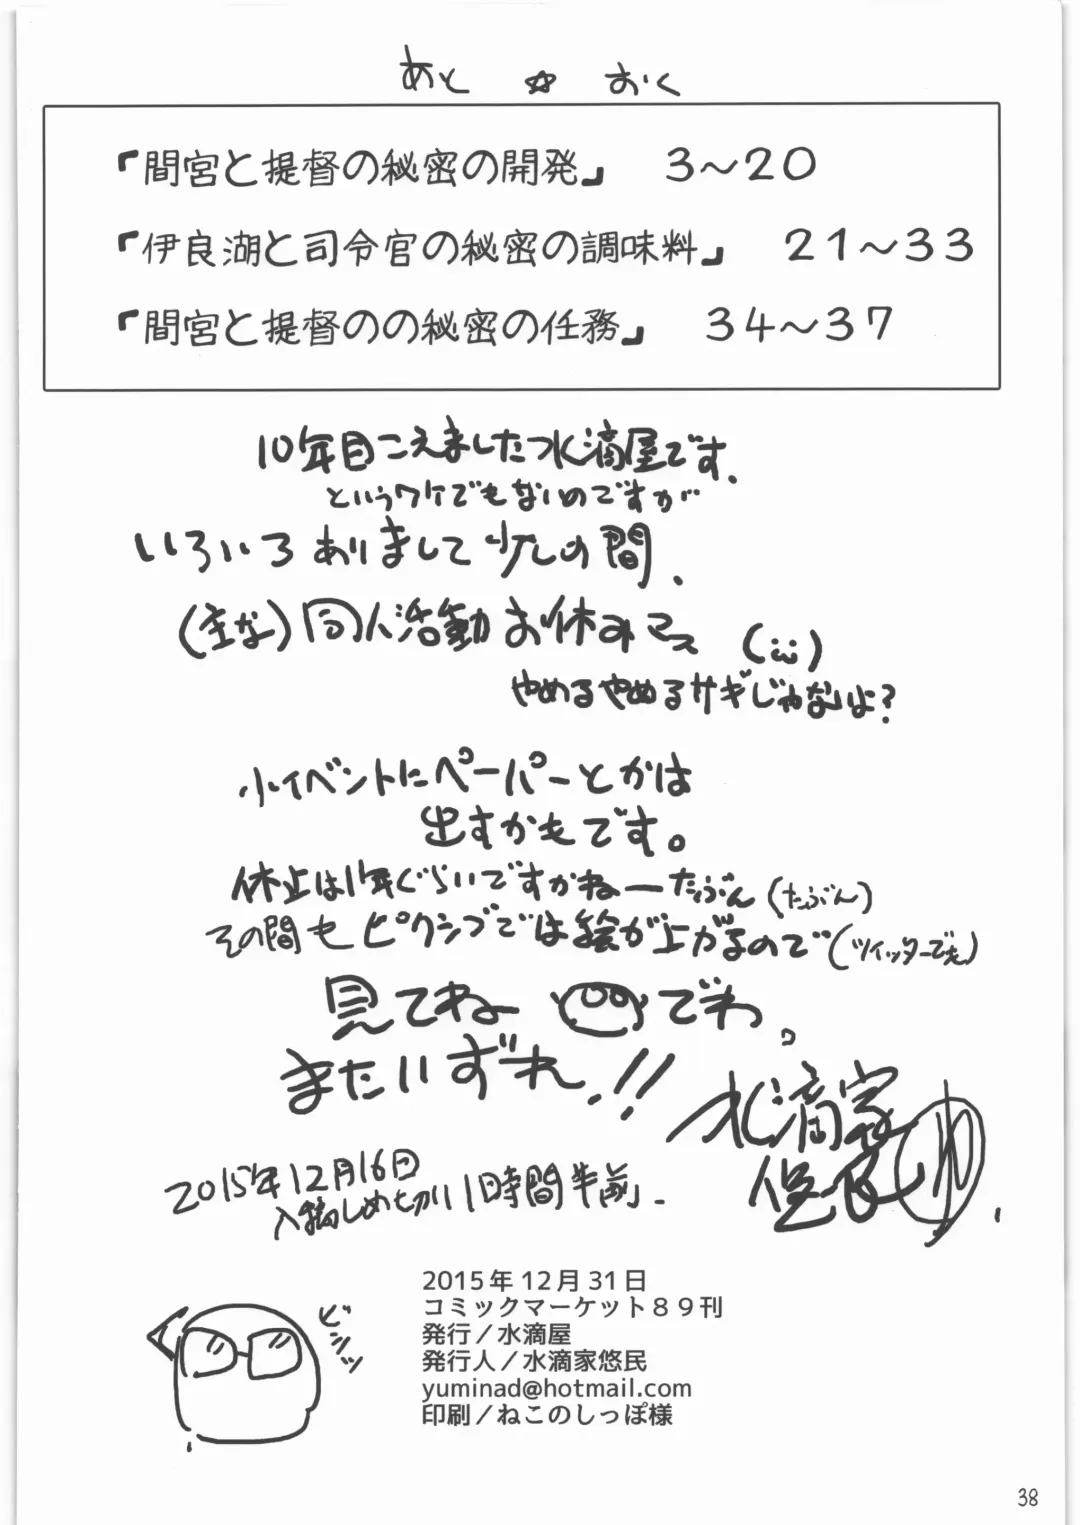 あと☆おく
『間宮と提督の秘密の開発』 3～20
『伊良湖と司令官の秘密の調味料』 21～33
『間宮と提督のの秘密の任務』 34～37
10年目こえましたっ水滴屋です.
というワケでもないのですが
いろいろありまして少しの間.
(主な)同人活動お休みマス (;ω;)
やめるやめるサギじゃないよ?
小イベントにペーパーとかは
出すかもです。
休止は1年ぐらいですかねーたぶん(たぶん)
その間もピクシブでは絵が上がるので(ツイッターでも)
見てねー でわ、
またいずれ.!!
水滴家
悠民
2015年12月16日
入稿しめ切り1時間半前.
ビシッ
2015年12月31日
コミックマーケット89刊
発行／水滴屋
発行人／水滴家悠民
yuminad@hotmail.com
印刷／ねこのしっぽ様
38